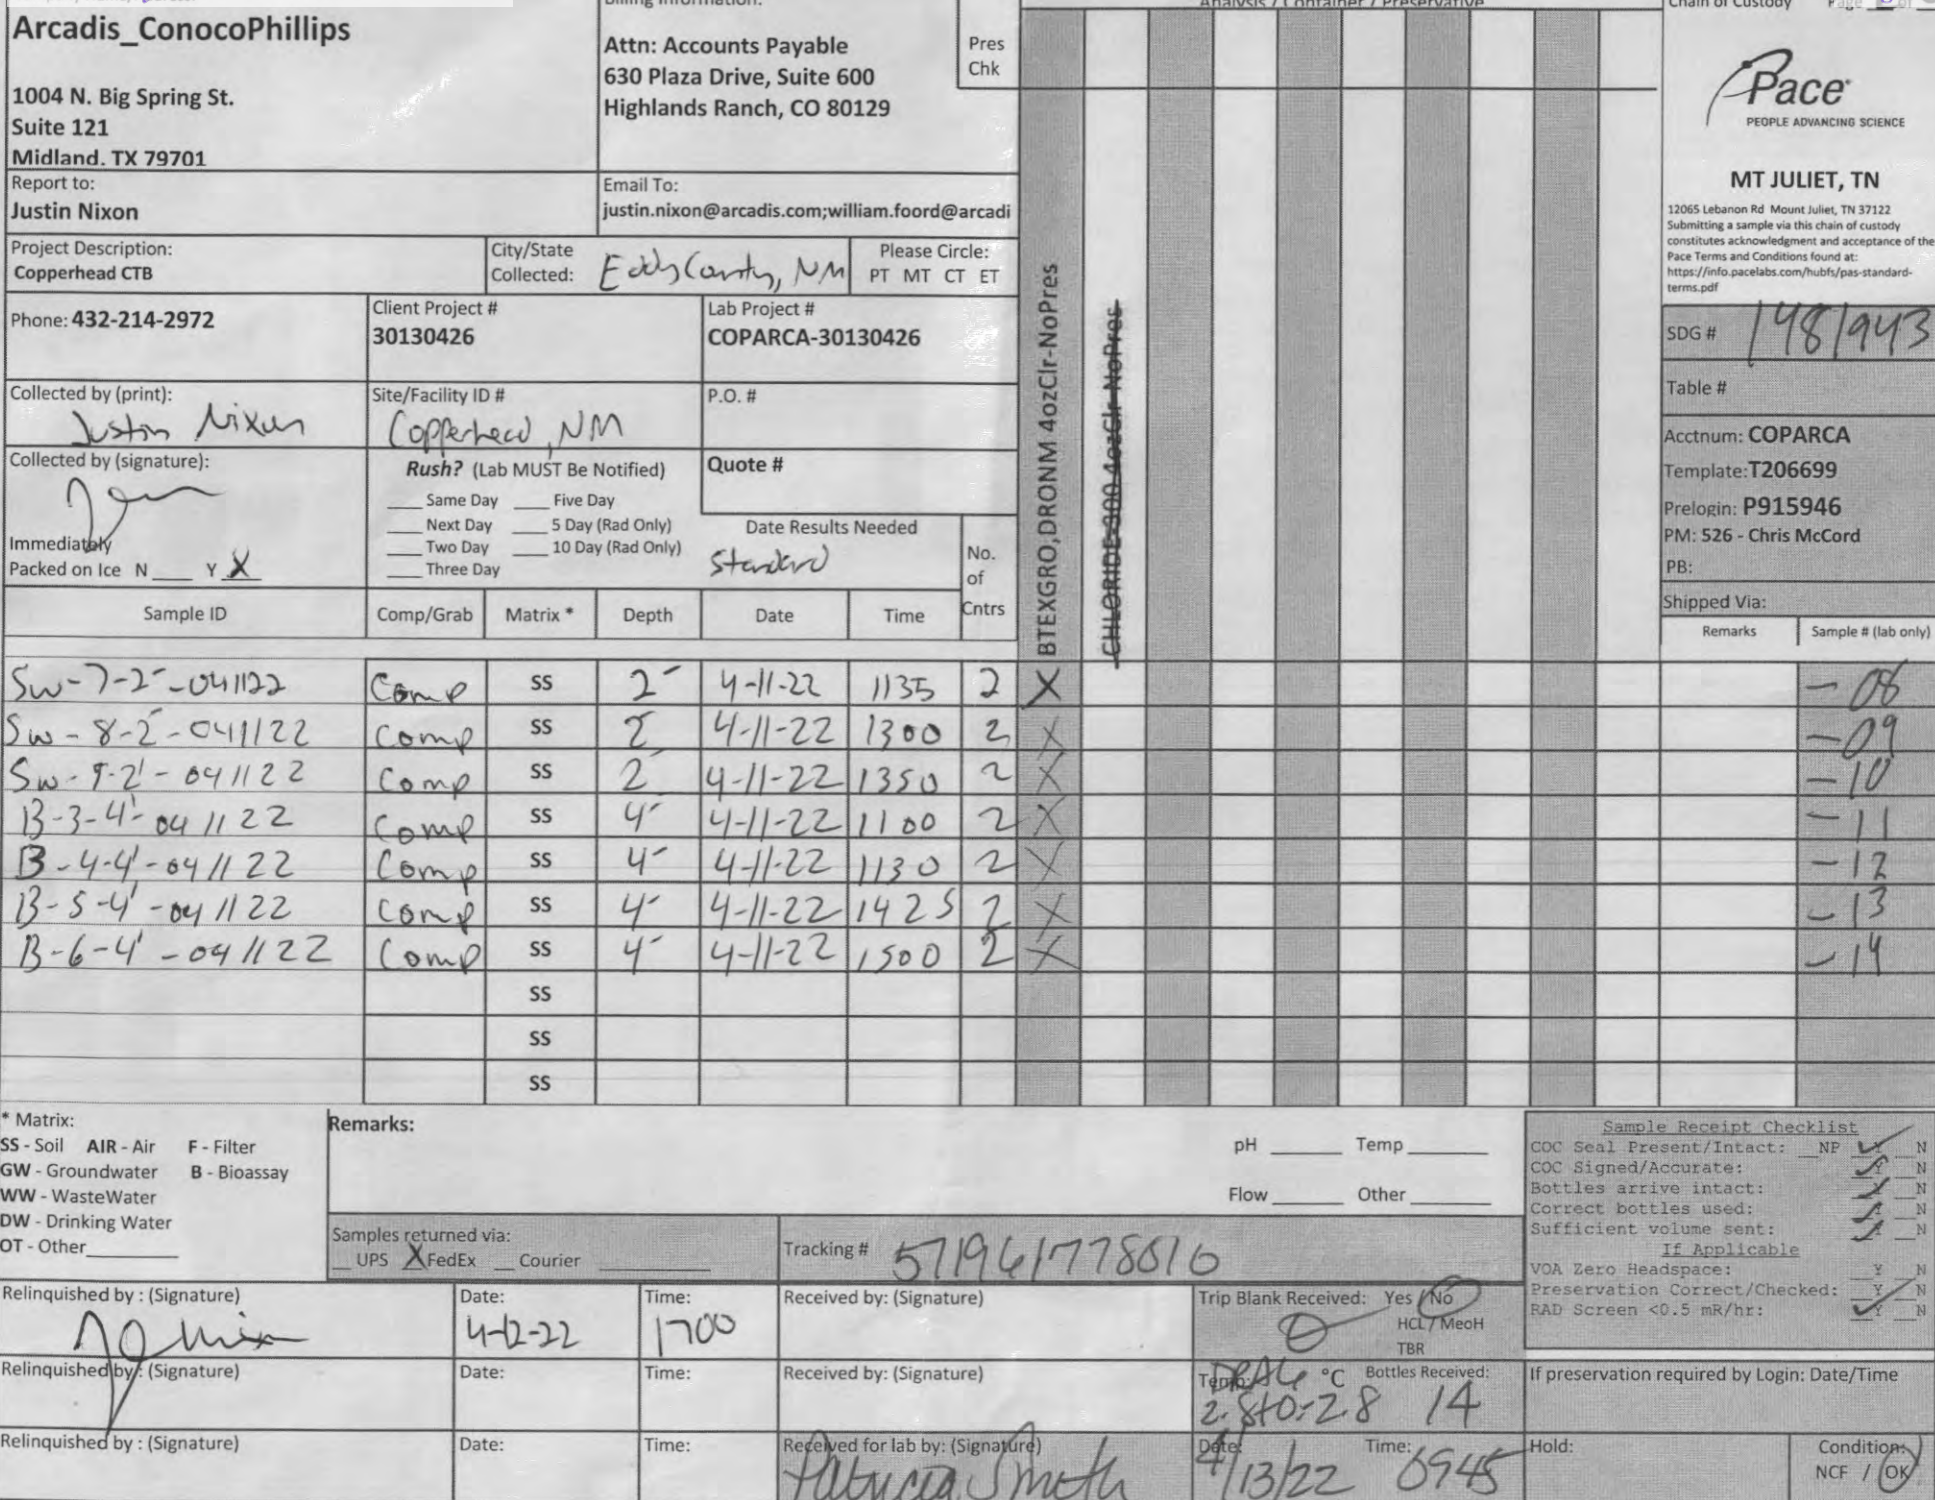 Billing Information:
Analysis / Container / Preservative
Chain of Custody Page
Arcadis_ConocoPhillips
1004 N. Big Spring St.
Suite 121
Midland, TX 79701
Attn: Accounts Payable
630 Plaza Drive, Suite 600
Highlands Ranch, CO 80129
Pres
Chk
Pace
PEOPLE ADVANCING SCIENCE
MT JULIET, TN
12065 Lebanon Rd Mount Juliet, TN 37122
Submitting a sample via this chain of custody
constitutes acknowledgment and acceptance of the
Pace Terms and Conditions found at:
https://info.pacelabs.com/hubfs/pas-standard-
terms.pdf
Report to:
Justin Nixon
Email To:
justin.nixon@arcadis.com;william.foord@arcadi
Project Description:
Copperhead CTB
City/State
Collected: Eddy County, NM
Please Circle:
PT MT CT ET
Phone: 432-214-2972
Client Project #
30130426
Lab Project #
COPARCA-30130426
Collected by (print):
Justin Nixon
Site/Facility ID #
Copperhead, NM
P.O. #
Collected by (signature):
Immediately
Packed on Ice N ___ Y X
Rush? (Lab MUST Be Notified)
___ Same Day ___ Five Day
___ Next Day ___ 5 Day (Rad Only)
___ Two Day ___ 10 Day (Rad Only)
___ Three Day
Quote #
Date Results Needed
Standard
No.
of
Cntrs
BTEXGRO,DRONM 4ozClr-NoPres
CHLORIDE-300 4ozClr-NoPres
SDG # 1481943
Table #
Acctnum: COPARCA
Template:T206699
Prelogin: P915946
PM: 526 - Chris McCord
PB:
Shipped Via:
Sample ID Comp/Grab Matrix * Depth Date Time Remarks Sample # (lab only)
SW-7-2'-041122 Comp SS 2' 4-11-22 1135 2 X -08
SW-8-2'-041122 Comp SS 2' 4-11-22 1300 2 X -09
SW-9-2'-041122 Comp SS 2' 4-11-22 1350 2 X -10
B-3-4'-041122 Comp SS 4' 4-11-22 1100 2 X -11
B-4-4'-041122 Comp SS 4' 4-11-22 1130 2 X -12
B-5-4'-041122 Comp SS 4' 4-11-22 1425 2 X -13
B-6-4'-041122 Comp SS 4' 4-11-22 1500 2 X -14
SS
SS
SS
* Matrix:
SS - Soil AIR - Air F - Filter
GW - Groundwater B - Bioassay
WW - WasteWater
DW - Drinking Water
OT - Other
Remarks:
pH ___ Temp ___
Flow ___ Other ___
Samples returned via:
__ UPS X FedEx __ Courier
Tracking #
Sample Receipt Checklist
COC Seal Present/Intact: __NP Y __N
COC Signed/Accurate: Y __N
Bottles arrive intact: Y __N
Correct bottles used: Y __N
Sufficient volume sent: Y __N
If Applicable
VOA Zero Headspace: __Y __N
Preservation Correct/Checked: __Y __N
RAD Screen <0.5 mR/hr: Y __N
Relinquished by : (Signature)
Date:
4-12-22
Time:
1700
Received by: (Signature)
Trip Blank Received: Yes / No
HCL / MeoH
TBR
Relinquished by : (Signature)
Date:
Time:
Received by: (Signature)
Temp: °C Bottles Received:
2.8+0=2.8 14
If preservation required by Login: Date/Time
Relinquished by : (Signature)
Date:
Time:
Received for lab by: (Signature)
Patricia Smith
Date:
4/13/22
Time:
0945
Hold:
Condition:
NCF / OK